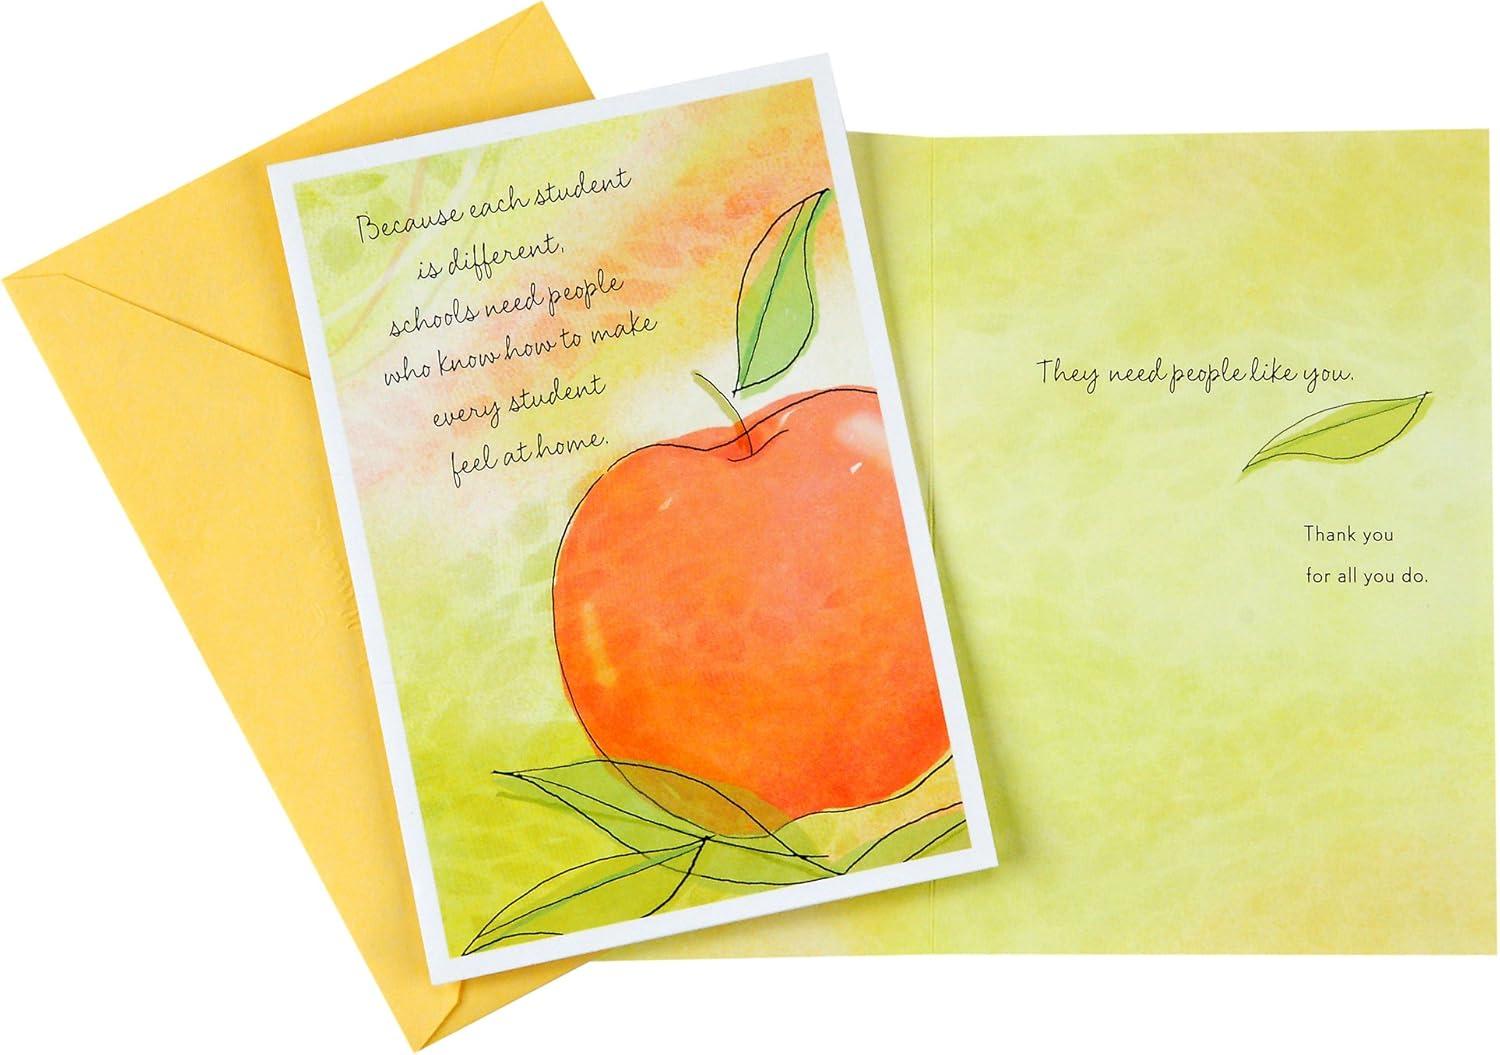 Because each student
is different,
schools need people
who know how to make
every student
feel at home.
They need people like you.
Thank you
for all you do.